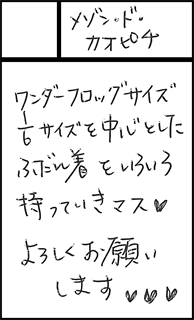 メゾン・ド・
カオピチ
ワンダーフロッグサイズ
1/6サイズを中心とした
ふだん着をいろいろ
持っていきマス♥
よろしくお願い
します♥♥♥